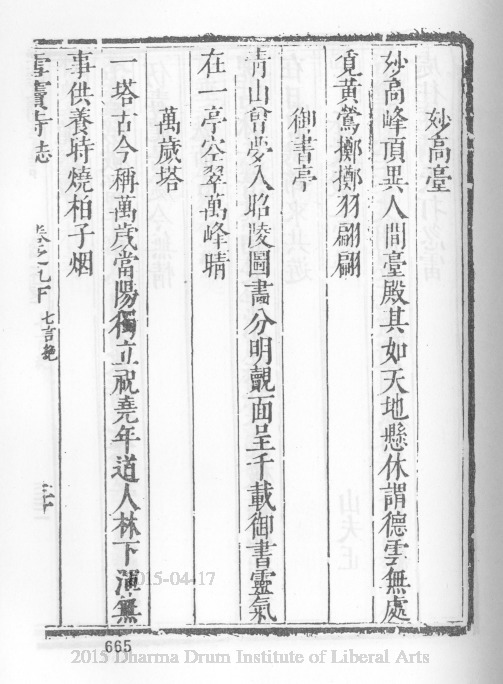 妙高臺
妙高峰頂異人間臺殿其如天地懸休謂德雲無處
覔黃鶯擲擲羽翩翩
御書亭
青山曾夢入昭陵圖畵分明覿面呈千載御書靈氣
在一亭空翠萬峰晴
萬歲塔
一塔古今稱萬歲當陽獨立祝堯年道人林下渾無
事供養時燒柏子烟
雪竇寺誌 卷之九下 七言絶
665
2015-04-17
2015 Dharma Drum Institute of Liberal Arts